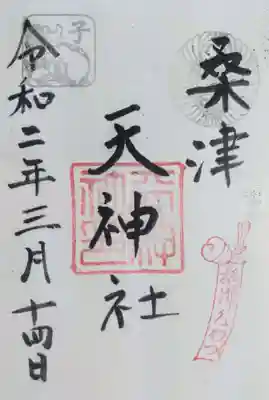 桑津
天神社
令和二年三月十四日
子